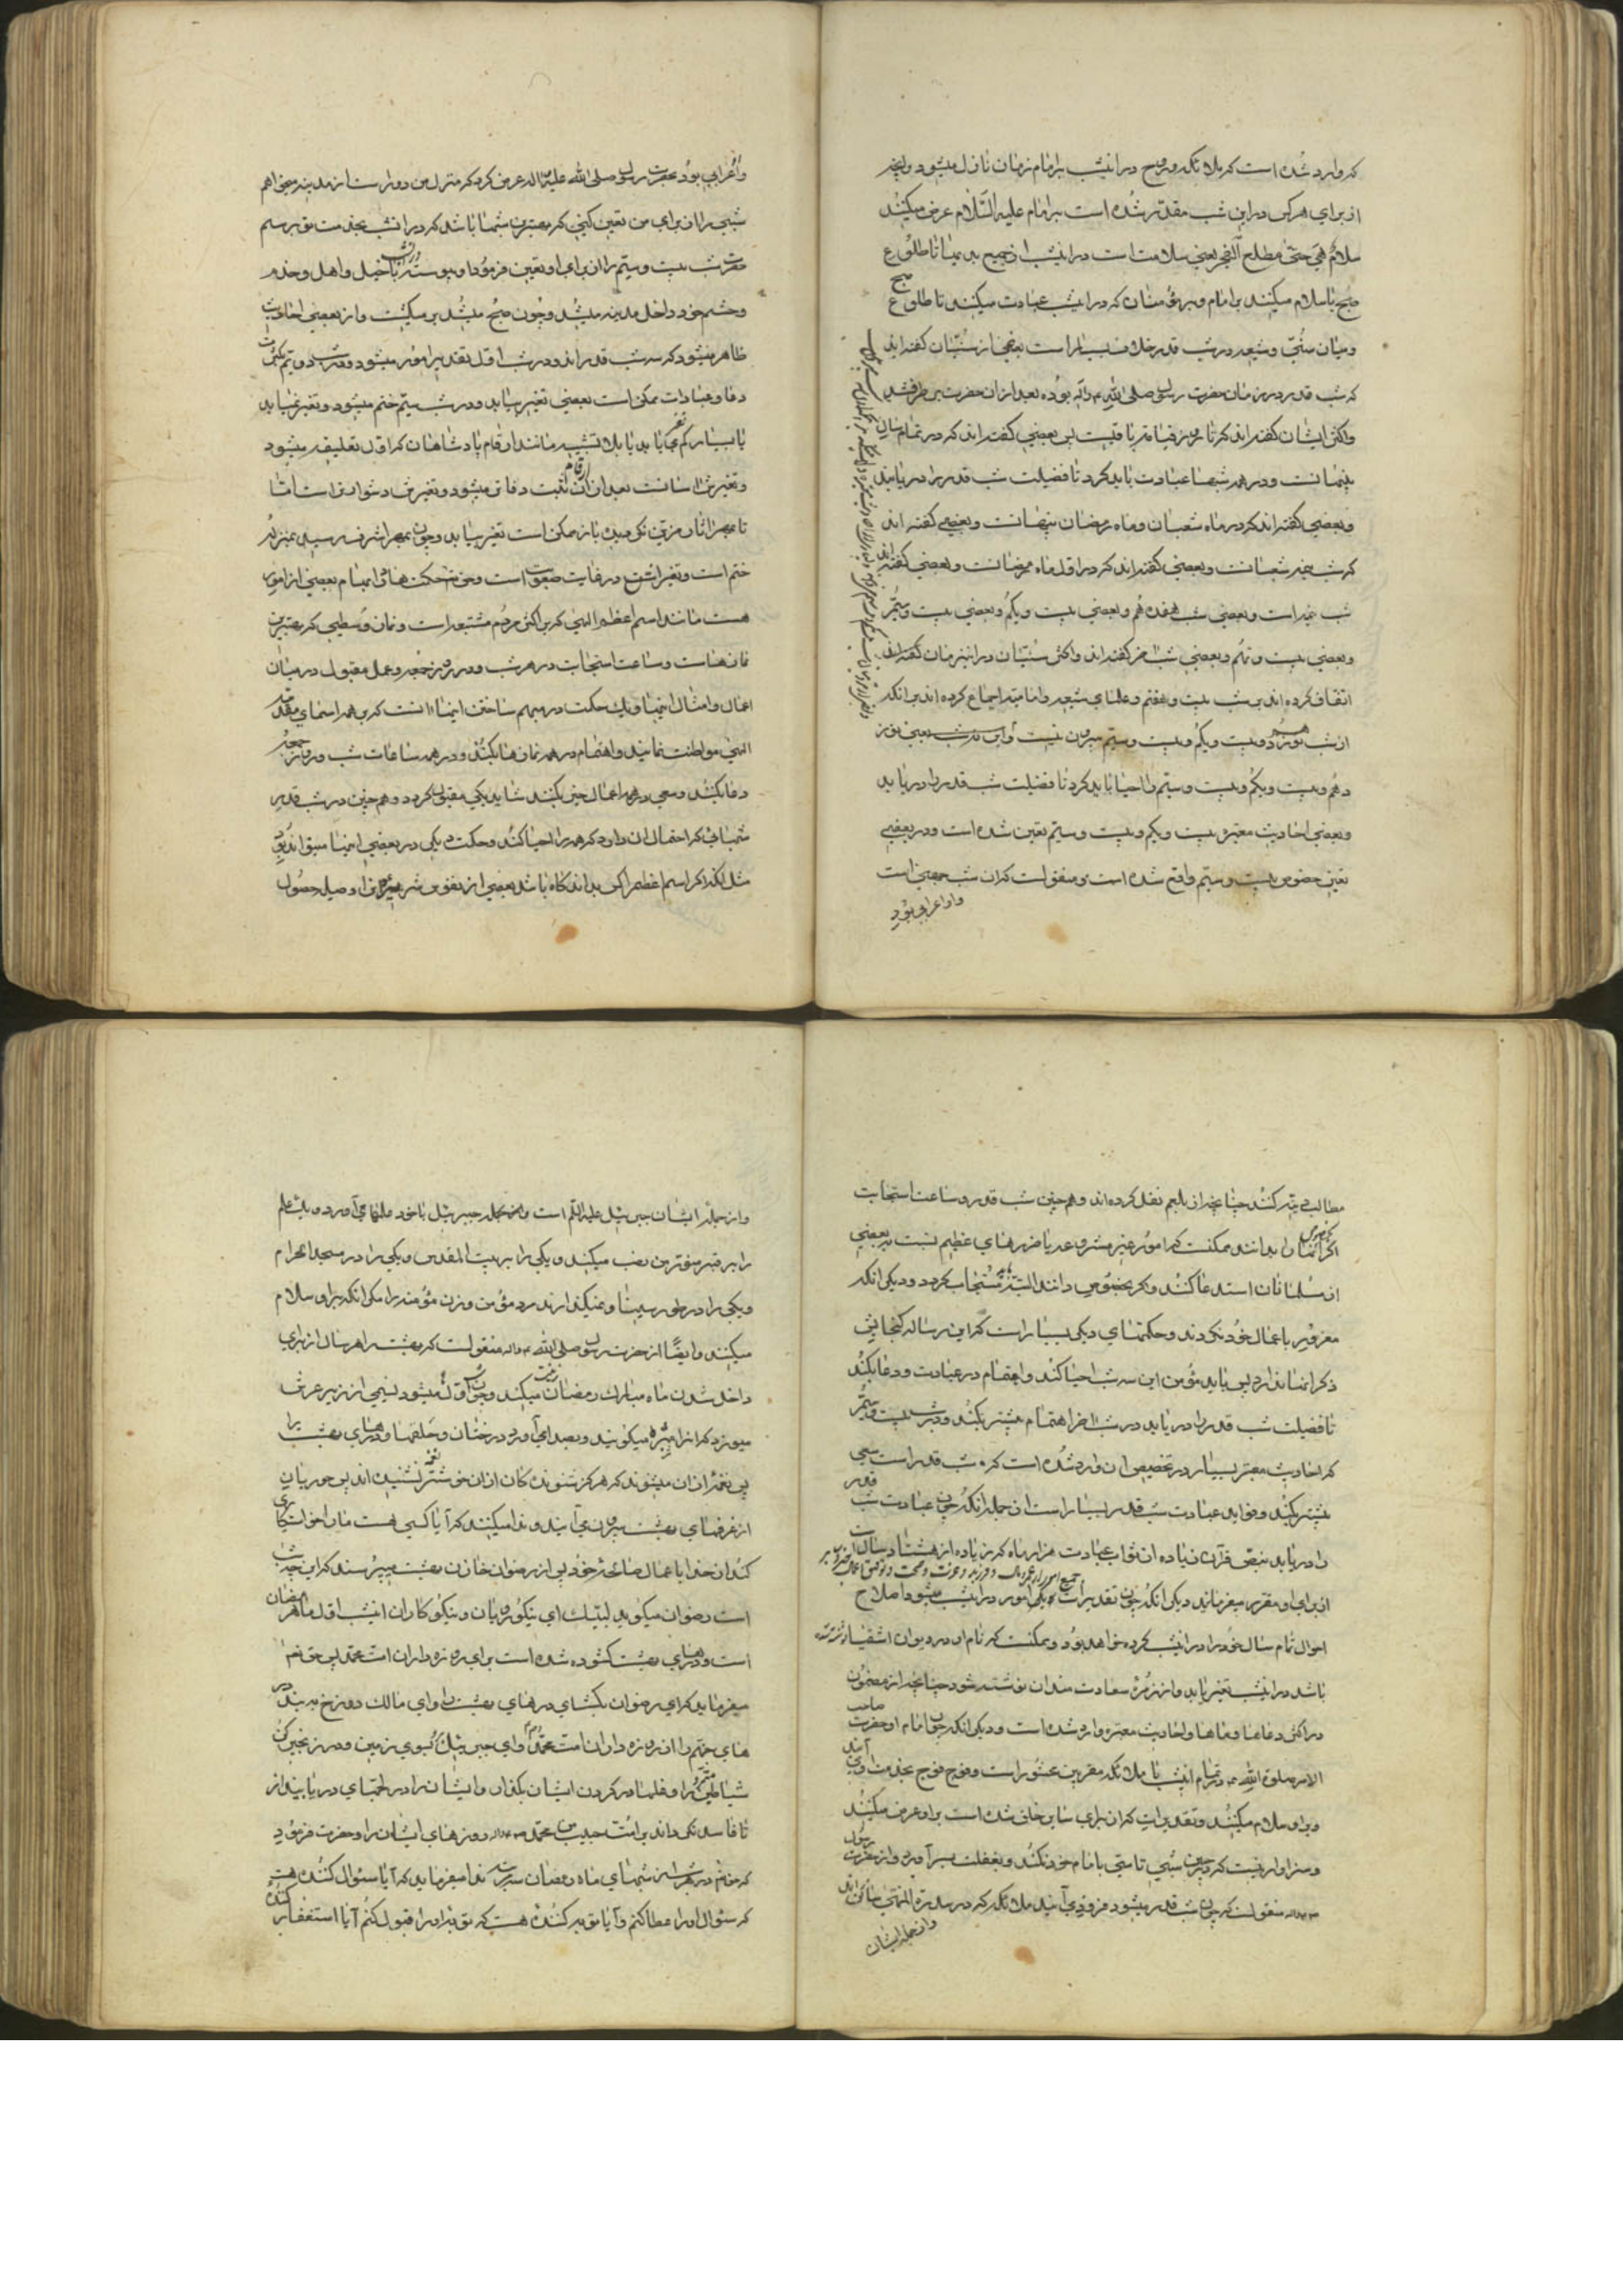 که وارد شده است که ملائکه و روح در انشب بر امام زمان نازل میشود و انچه
از برای هر کس در این شب مقدّر شده است بر امام علیه السّلام عرض میکنند
سلامٌ هی حتّی مطلع الفجر یعنی سلامت است در انشب از جمیع بدیها تا طلوع
صبح یا سلام میکنند بر امام و بر مؤمنان که در انشب عبادت میکنند تا طلوع صبح
و میان سنّی و شیعه در شب قدر خلاف بسیار است بعضی از سنّیان گفته اند
که شب قدر در زمان حضرت رسول صلی الله و آله بوده بعد از ان حضرت بر طرف شد
و اکثر ایشان گفته اند که تا روز قیامت باقیست پس بعضی گفته اند که در تمام سال
پنهانست و در همه شبها عبادت باید کرد تا فضیلت شب قدر را دریابند
و بعضی گفته اند که در ماه شعبان و ماه رمضان پنهانست و بعضی گفته اند
که شب نیمه شعبانست و بعضی گفته اند که در اوّل ماه رمضانست و بعضی گفته اند
شب نیمه است و بعضی شب هفدهم و بعضی بیست و یکم و بعضی بیست و سیّم
و بعضی بیست و نهم و بعضی شب اخر گفته اند و اکثر سنّیان در این زمان گفته اند
اتفاق کرده اند بر شب بیست و هفتم و علمای شیعه امامیه اجماع کرده اند بر انکه
از شب نوزدهم و بیست و یکم و بیست و سیّم بیرون نیست و این سه شب یعنی نوز
دهم و بیست و یکم و بیست و سیّم را احیا باید کرد تا فضیلت شب قدر را دریابد
و بعضی احادیث معتبره بیست و یکم و بیست و سیّم تعیین شده است و در بعضی
تعیین خصوص بیست و سیّم واقع شده است و منقولست که ان شب جهنی است
و او اعرابی بود
و او اعرابی بود بحضرت رسول صلی الله علیه و اله عرض کرد که منزل من دور است از مدینه میخواهم
شبی را از برای من تعیین کنی که بهترین شبها باشد که در انشب بخدمت تو برسم
حضرت شب بیست و سیّم را از برای او تعیین فرمود و پیوسته در انشب با خیل و اهل و خدم
و حشم خود داخل مدینه میشد و چون صبح میشد بر میگشت و از بعضی احادیث
ظاهر میشود که سه شب قدر اند و در شب اوّل تقدیر امور میشود و در شب دویّم بکثرت
دعا و عبادات ممکن است بعضی تغییر بیابد و در شب سیّم ختم میشود و تغییر نمیابد
یا بسیار کم تغییر میابد یا بلا تشبیه مانند ارقام پادشاهان که اوّل تعلیقه میشود
و تغییرش اسانست بعد از ان ارقام ثبت دفاتر میشود و تغییرش دشوارتر است امّا
تا بمهر اثار مزیّن نگردیده باز ممکن است تغییر بیابد و چون بمهر اشرف رسید بمنزله
ختم است و تغییر انشق در غایت صعوبت است و حق تعالی حکمتها در ابهام بعضی از امور
هست مانند اسم اعظم الهی که بر اکثر مردم مشتبه است و نماز وسطی که بهترین
نمازهاست و ساعت استجابت در هر شب و در روز جمعه و عمل مقبول در میان
اعمال و امثال اینها و یک حکمت در مبهم ساختن اینها انست که بر همه اسمای مقدسه
الهی مواظبت نمایند و اهتمام در همه نمازها بکنند و در همه ساعات شب و روز جمعه
دعا بکنند و سعی در همه اعمال خیر بکنند شاید یکی مقبول گردد و همچنین در شب قدر
شبهائی که احتمال ان دارد که همه را احیا کنند و حکمت دیگر در بعضی اینها میتواند بود
مثل انکه اگر اسم اعظم را کسی بداند گاه باشد بعضی از نفوس شریره ان را وصیله حصول
مطالب بد کنند چنانچه از بلعم نقل کرده اند و همچنین شب قدر و ساعت استجابت
اگر انها را بدانند ممکنست که امور غیر مشروعه یا ضررهای عظیم نسبت به بعضی
از مسلمانان استدعا کنند و اگر بخصوص دانند البته باید مستجاب گردد و دیگر انکه
مغرور باعمال خود نگردند و حکمتهای دیگر بسیار است که این رساله گنجایش
ذکر انها ندارد پس باید مؤمن این سه شب احیا کند و اهتمام در عبادت و دعا بکند
تا فضیلت شب قدر را دریابد در شب اخر اهتمام بیشتر بکند و در شب بیست و سیّم
که احادیث معتبر بسیار در تخصیص ان وارد شده است که شب قدر است سعی
بیشتر بکند و فواید عبادت شب قدر بسیار است از جمله انکه چون عبادت شب قدر
را دریابد بنص قرآن زیاده از ثواب عبادت هزار ماه که زیاده از هشتاد سال است
از برای او مقرر میفرماید دیگر انکه چون تقدیرات جمیع امور از عمر و مال و فرزند و عزت و صحت و توفیق اعمال خیر در انشب میشود اصلاح
احوال تمام سال خود را در انشب کرده خواهد بود و ممکنست که نام او در دیوان اشقیا نوشته شده
باشد در انشب تغییر یابد و از زمرۀ سعادتمندان نوشته شود چنانچه از مضمون
در اکثر دعاها و احادیث معتبره وارد شده است و دیگر انکه چون امام او حضرت صاحب
الامر صلوة الله علیه در تمام انشب با ملائکه مقربین محشور است و فوج فوج بخدمت او می آیند
و بر او سلام میکنند و تقدیرات که از برای سایر خلق شده است بر او عرض میکنند
و سزاوار نیست که در چنین شبی تاسّی بامام خود نکند و بغفلت بسر آورد و از حضرت رسول
منقولست که چون شب قدر میشود فرود می آیند ملائکه که در سدرة المنتهی ساکن اند
و از جمله ایشان
و از جمله ایشان جبرئیل علیه السلم است و جبرئیل با خود علمها می آورد و یک علم
را بر قبر منوّر من نصب میکند و یکی را بر بیت المقدس و یکی را در مسجد الحرام
و یکی را در طور سینا و نمیگذارند مرد مؤمن و زن مؤمنه را مگر انکه بر او سلام
میکنند و ایضا از حضرت رسول صلی الله و اله منقولست که بهشت را هر سال از برای
داخل شدن ماه مبارک رمضان زینت میکنند و چون شب اوّل میشود نسیمی از زیر عرش
میوزد که انرا مثیره میگویند و بصدا می آورد درختان و حلقها و درهای بهشت را
پس نغمۀ از ان میشنوند که هرگز شنوندگان از ان خوشتر نغمه نشنیده اند پس حوریان
از غرفهای بهشت بیرون می آیند و ندا میکنند که آیا کسی هست ما را خواستگاری
کند از خدا با اعمال صالحۀ خود پس از رضوان خازن بهشت میپرسند که این چه شب
است رضوان میگوید لبّیک ای نیکورویان و نیکوکاران انشب اوّل ماه رمضان
است و درهای بهشت گشوده شده است برای روزه داران امّت محمّد پس حق تعالی
میفرماید که ای رضوان بگشای درهای بهشت را و ای مالک دوزخ ببند در
های جهنّم را از روزه داران امّت محمّد و ای جبرئیل برو بسوی زمین و در زنجیر کن
شیاطین متمرد را و غلها در گردن ایشان بگذار و ایشان را در لجّهای دریا بینداز
تا فاسد نگردانند بر امّت حبیب من محمّد روزهای ایشان را و حضرت فرمود
که حق تعالی در هر شب از شبهای ماه رمضان سه مرتبه ندا میفرماید که آیا سئوال کننده هست
که سئوال او را عطا کنم و آیا توبه کننده هست که توبۀ او را قبول کنم آیا استغفار کننده